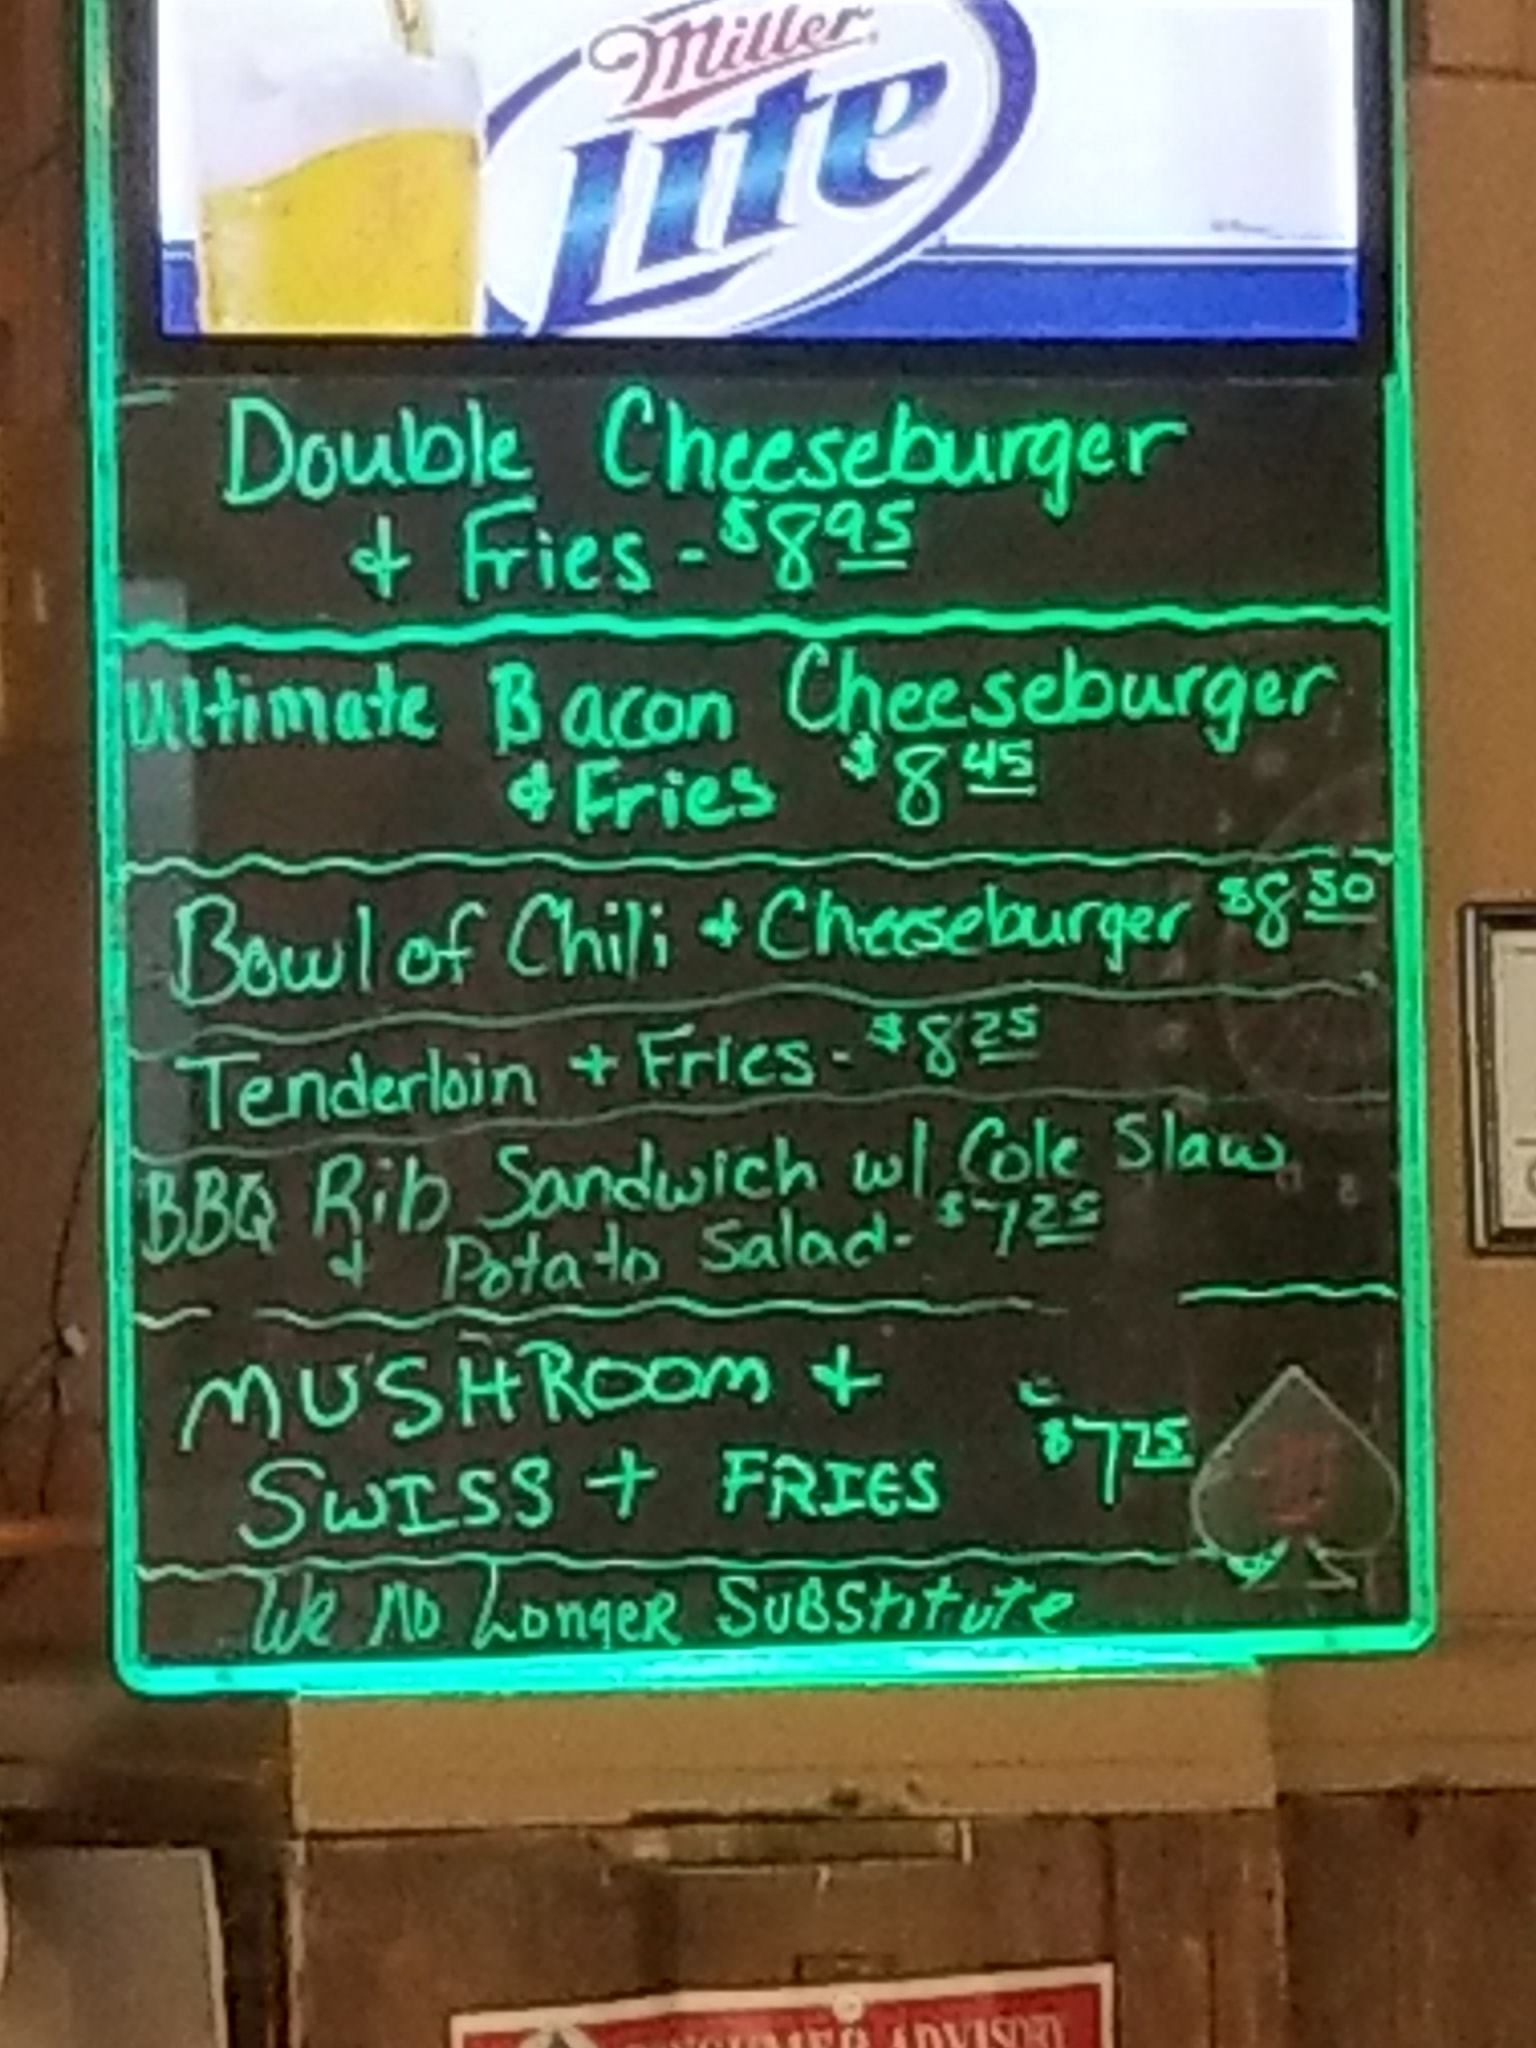 Miller
Lite
Double Cheeseburger
& Fries - $8 95
Ultimate Bacon Cheeseburger
& Fries $8 45
Bowl of Chili & Cheeseburger $8 50
Tenderloin + Fries - $8 25
BBQ Rib Sandwich w/ Cole Slaw
& Potato Salad - $7 25
MUSHROOM +
SWISS + FRIES $7 75
We No Longer Substitute
CONSUMER ADVISORY